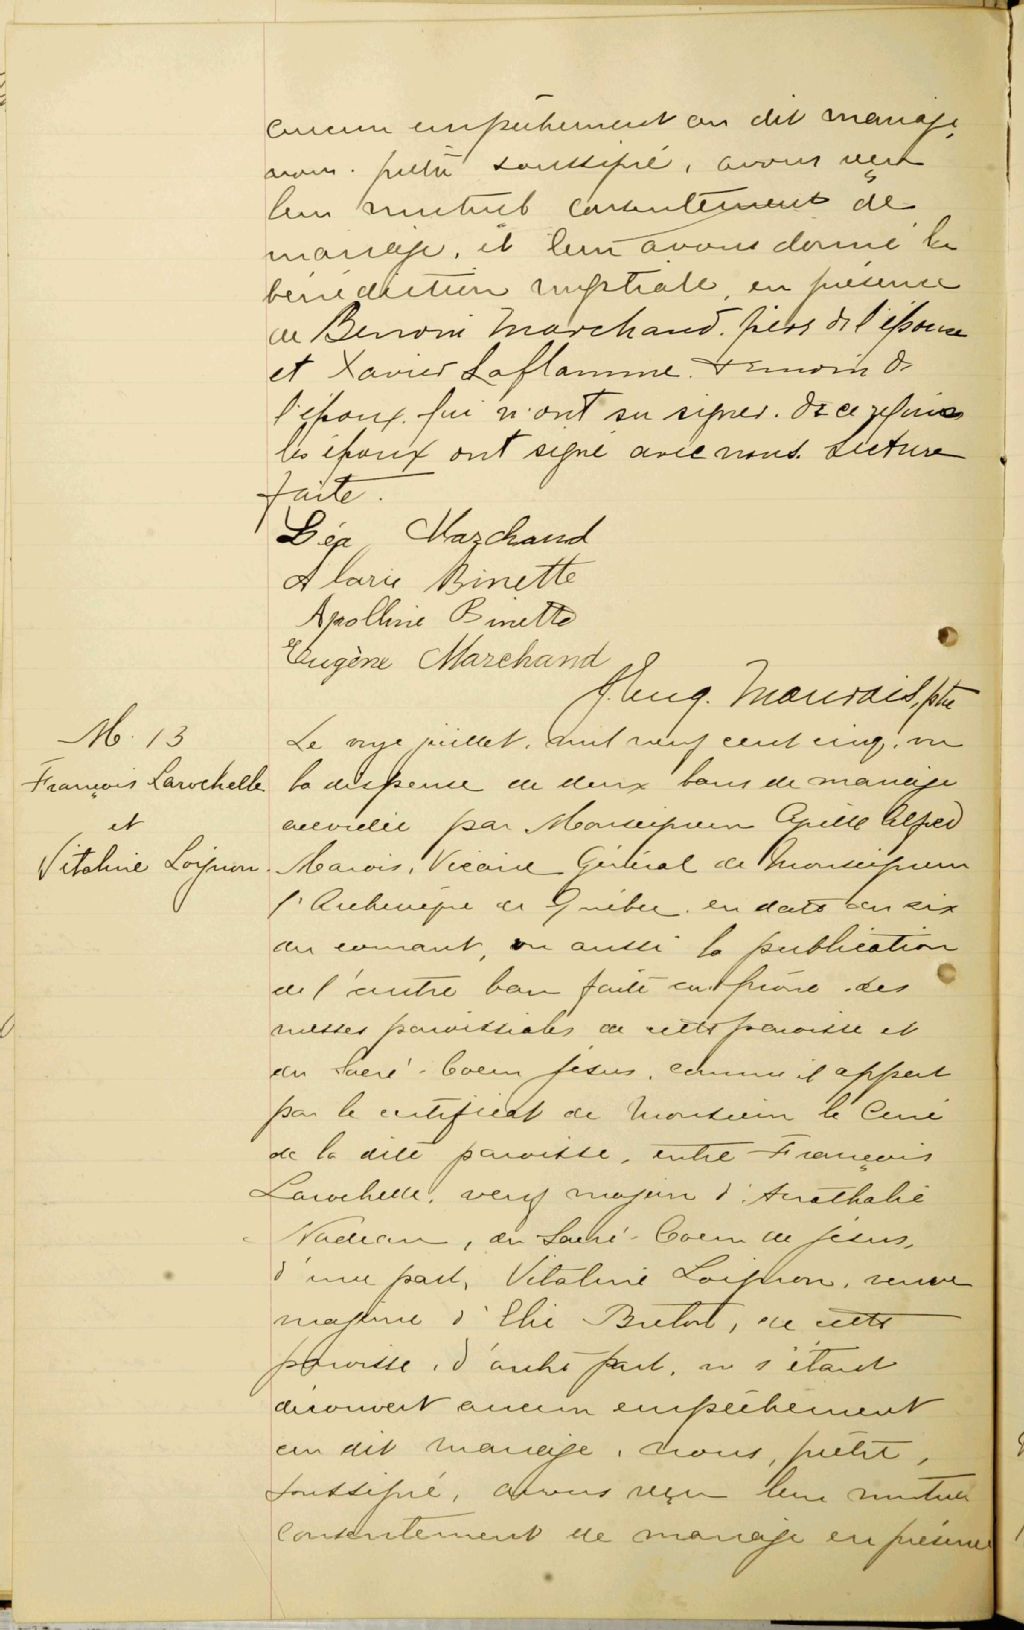 aucun empêchement au dit mariage,
nous prêtre soussigné, avons reçu
leur mutuel consentement de
mariage, et leur avons donné la
bénédiction nuptiale, en présence
de Benoni Marchand, père de l'épouse
et Xavier Laflamme témoin de
l'époux qui n'ont su signer. De ce requis
les époux ont signé avec nous. Lecture
faite.
Léa Marchand
Alarie Binette
Apolline Binette
Eugène Marchand
J. Eug. Maurais, ptre
M. 13
François Larochelle
et
Vitaline Loignon.
Le onze juillet, mil neuf cent cinq, vu
la dispense de deux bans de mariage
accordée par Monseigneur Cyrille Alfred
Marois, Vicaire Général de Monseigneur
l'Archevêque de Québec en date du six
du courant, vu aussi la publication
de l'autre ban faite au prône des
messes paroissiales de cette paroisse et
du Sacré-Coeur Jésus, comme il appert
par le certificat de Monsieur le Curé
de la dite paroisse, entre François
Larochelle, veuf majeur d'Anathalie
Nadeau, du Sacré-Coeur de Jésus,
d'une part, Vitaline Loignon, veuve
majeure d'Elie Breton, de cette
paroisse, d'autre part, ne s'étant
découvert aucun empêchement
au dit mariage, nous, prêtre,
soussigné, avons reçu leur mutuel
consentement de mariage en présence